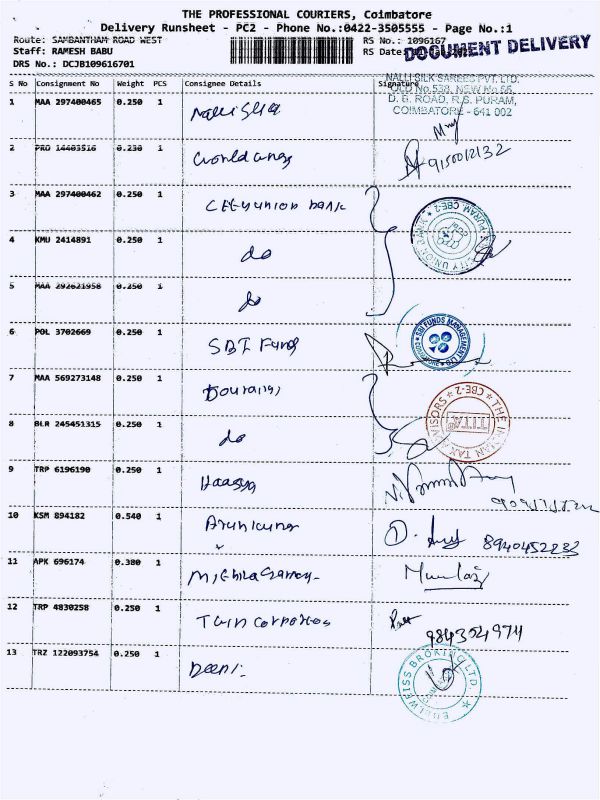 THE PROFESSIONAL COURIERS, Coimbatore
Delivery Runsheet - PC2 - Phone No.:0422-3505555 - Page No.:1
Route: SAMBANTHAM ROAD WEST
RS No.: 1096167
Staff: RAMESH BABU
RS Date:
DOCUMENT DELIVERY
DRS No.: DCJB109616701
S No Consignment No Weight PCS Consignee Details Signature
NALLI SILK SAREES PVT. LTD.
OLD No.538, NEW No.66,
D. B. ROAD, R.S. PURAM,
COIMBATORE - 641 002
1 MAA 297400465 0.250 1 Nalli Silk
2 PRO 14403516 0.230 1 9150012132
3 MAA 297400462 0.250 1 City union bank
4 KMU 2414891 0.250 1 do
CITY UNION BANK
5 MAA 292621958 0.250 1 do
6 POL 3702669 0.250 1 SBI Funds
SBI FUNDS MANAGEMENT
7 MAA 569273148 0.250 1
THE INDIAN TAX ADVISORS
CBE-2
TITA
8 BLR 245451315 0.250 1 do
9 TRP 6196190 0.250 1
10 KSM 894182 0.540 1 Arunkumar
11 APK 696174 0.380 1
12 TRP 4830258 0.250 1 Twin corporates
9843504974
13 TRZ 122093754 0.250 1
EDELWEISS BROKING LTD.